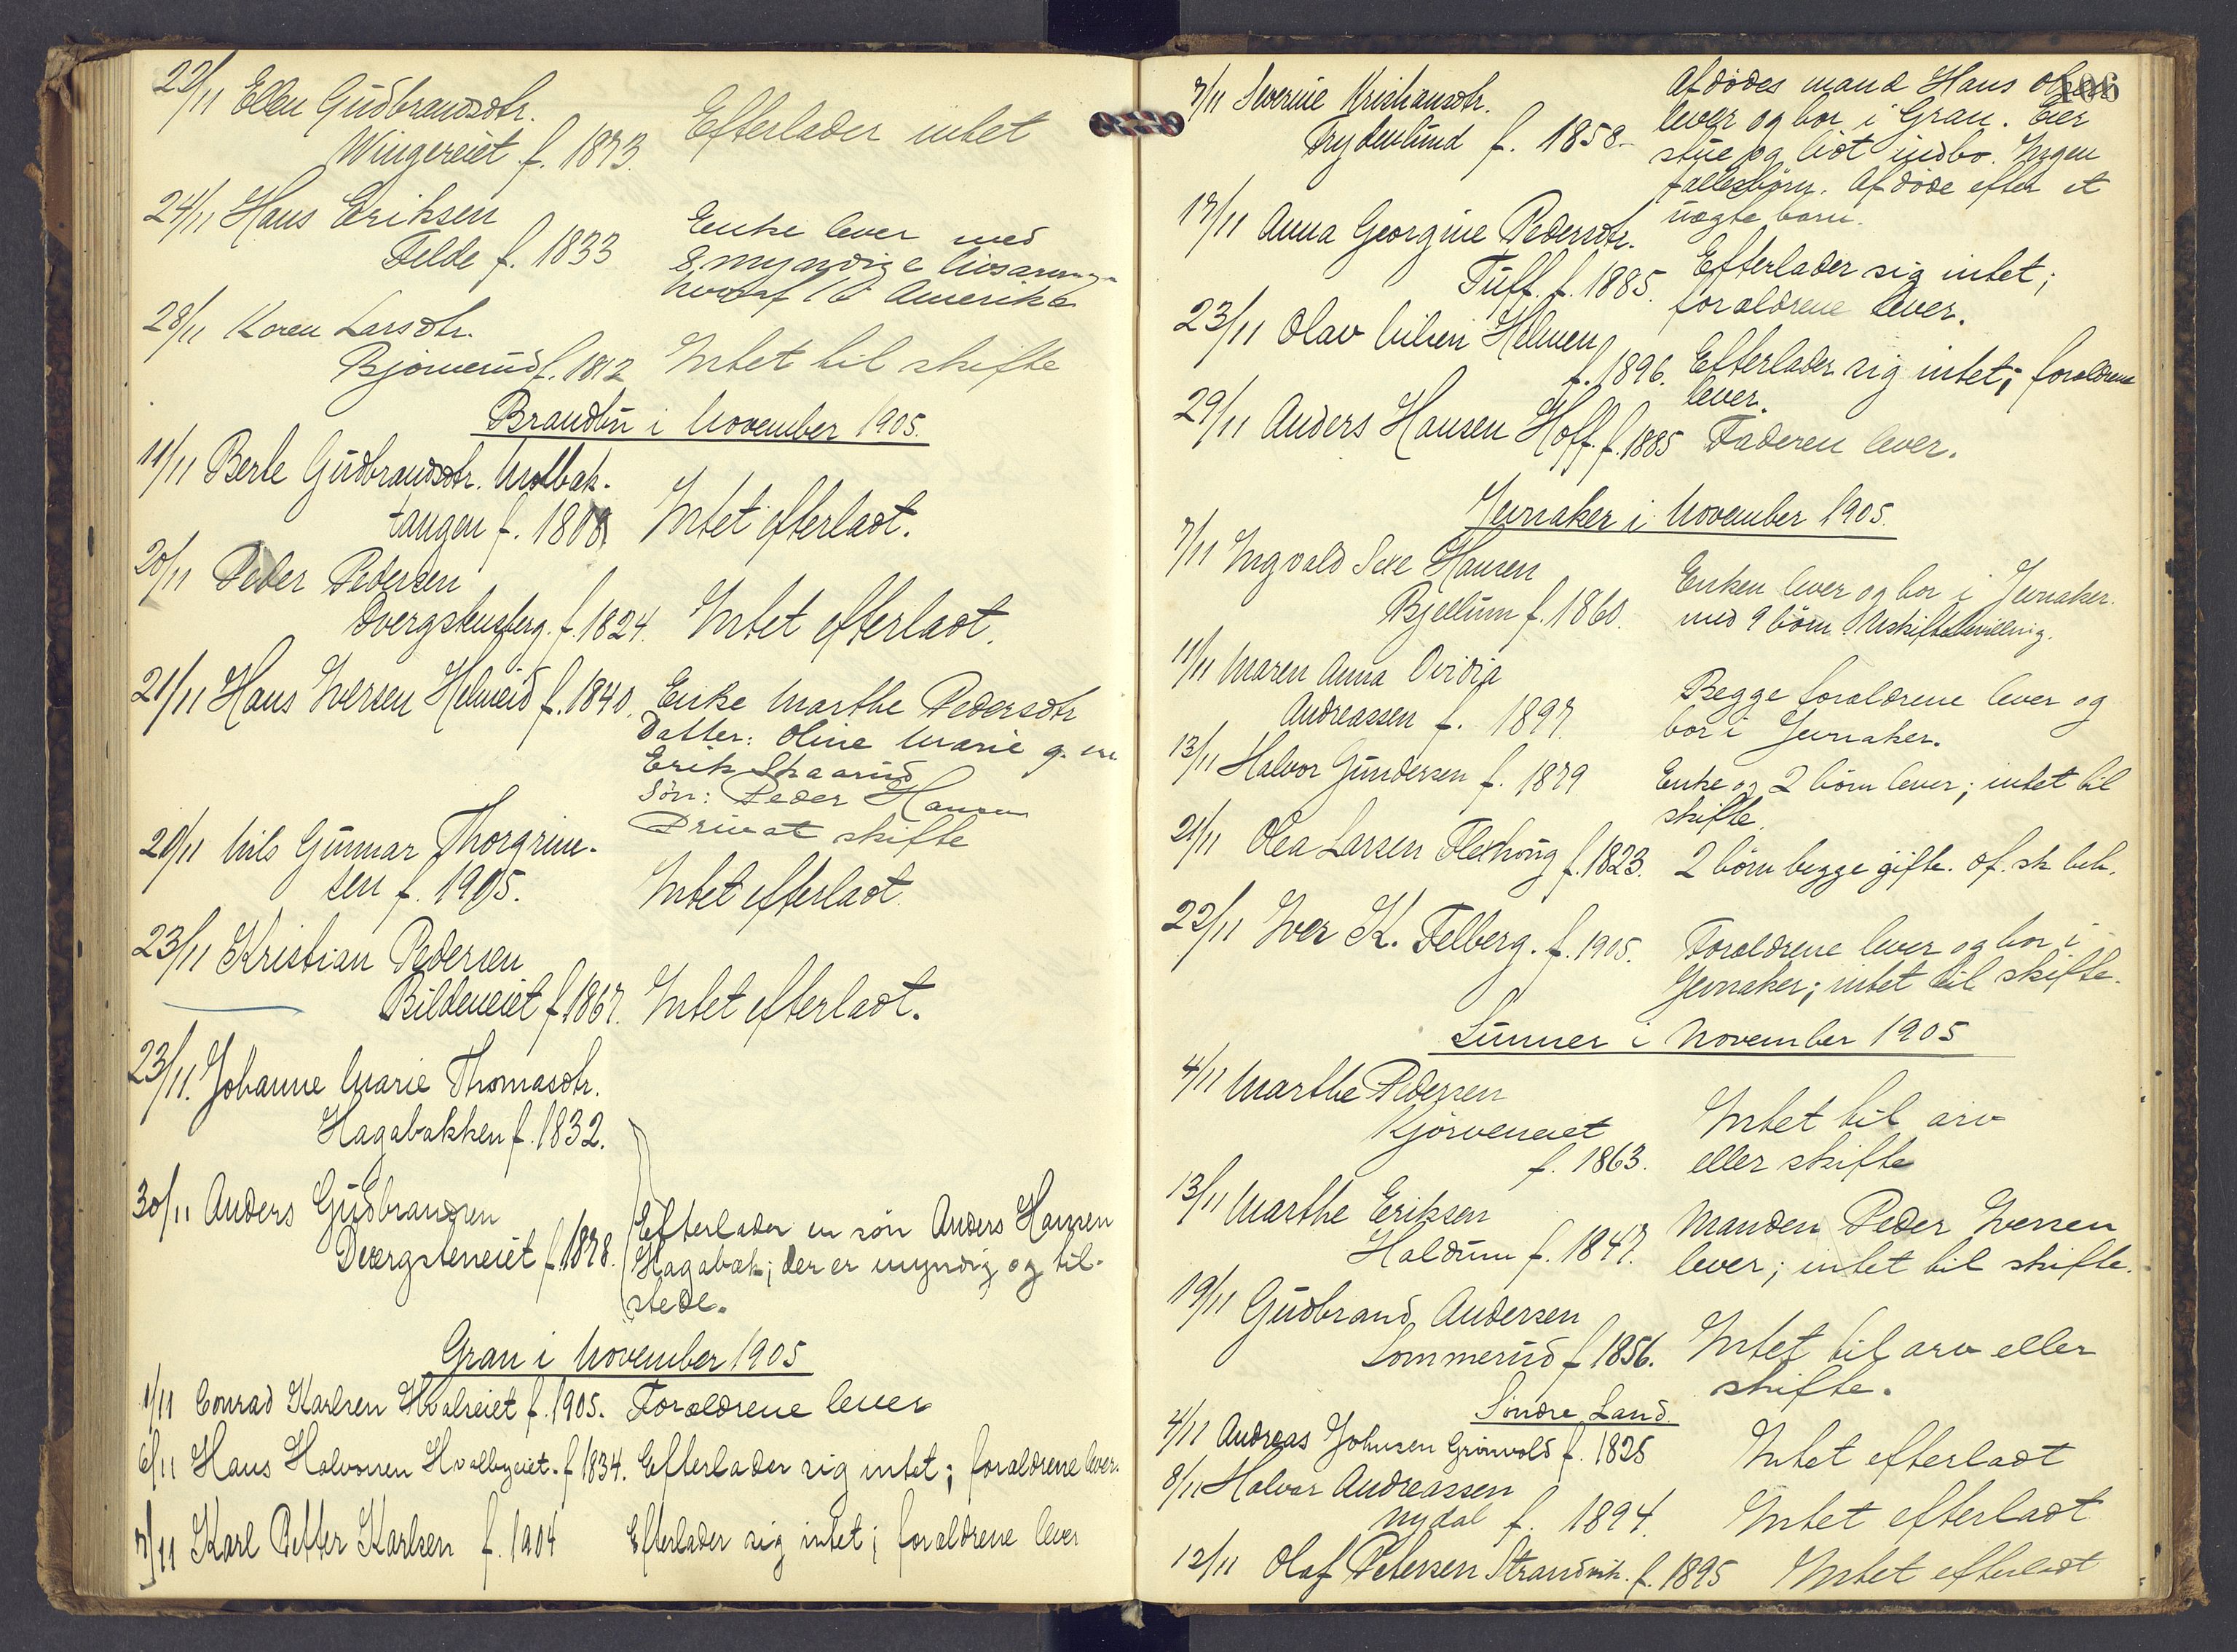 22/11 Ellen Gudbrandsdtr.
Wingereiet f. 1873. Efterlader intet
24/11 Hans Eriksen
Felde f. 1833 Enke lever med
8 myndige livsarvinger
hvoraf 1 i Amerika
28/11 Karen Larsdtr.
Bjørnerud f. 1812 Intet til skifte
Brandbu i November 1905.
11/11 Berte Gudbrandsdtr. Molbak-
tangen f. 1808 Intet efterladt.
20/11 Peder Pedersen
Dvergstensberg. f. 1824. Intet efterladt.
21/11 Hans Iversen Helmeid f. 1840. Enke Marthe Pedersdtr
Datter: Oline Marie g. m.
Erik Skaarud
Søn: Peder Hansen
Privat skifte
20/11 Nils Gunnar Thorgrim-
sen f. 1905. Intet efterladt.
23/11 Kristian Pedersen
Bildeneiet f. 1867. Intet efterladt.
23/11. Johanne Marie Thomasdtr.
Hagabakken f. 1832.
30/11 Anders Gudbrandsen
Dvergsteneiet f. 1878. Efterlader en søn Anders Hansen
Hagabak; der er myndig og til-
stede.
Gran i November 1905
1/11 Conrad Karlsen Hvalseiet f. 1905. Forældrene lever
6/11 Hans Halvorsen Hvalbyeiet. f. 1834. Efterlader sig intet; forældrene lever.
7/11 Karl Petter Karlsen f. 1904 Efterlader sig intet; forældrene lever
106
7/11 Severine Kristiansdtr.
Frydenlund f. 1858. Afdødes mand Hans Olsen
lever og bor i Gran. Eier
stue og lidt indbo. Ingen
fællesbørn. Afdøde efter et
uægte barn.
17/11 Anna Georgine Pedersdtr.
Tuff. f. 1885. Efterlader sig intet;
forældrene lever.
23/11 Olav Nilsen Helmen
f. 1896. Efterlader sig intet; forældrene
lever.
29/11 Anders Hansen Hoff. f. 1885 Faderen lever.
Jevnaker i November 1905.
7/11 Ingvald Hansen
Bjellum f. 1860. Enken lever og bor i Jevnaker
med 9 børn. Uskiftetbevilling.
11/11 Maren Anna Ovidia
Andreassen f. 1897. Begge forældrene lever og
bor i Jevnaker.
13/11 Halvor Gundersen f. 1879 Enke og 2 børn lever; intet til
skifte.
21/11 Olea Larsen f. 1823. 2 børn begge gifte. Of. sk. beh.
22/11 Iver K. Felberg. f. 1905. Forældrene lever og bor i
Jevnaker; intet til skifte.
Lunner i November 1905
4/11 Marthe Pedersen
Kjørveneiet
f. 1863. Intet til arv
eller skifte
13/11 Marthe Eriksen
Haldum f. 1847. Manden Peder Iversen
lever; intet til skifte.
19/11 Gudbrand Andersen
Sommerud f. 1856. Intet til arv eller
skifte.
Søndre Land.
4/11 Andreas Johnsen Grønvold f. 1828 Intet efterladt
8/11 Halvor Andreassen
Nydal f. 1894. Intet efterladt
12/11 Olaf Petersen Strandvik. f. 1895 Intet efterladt